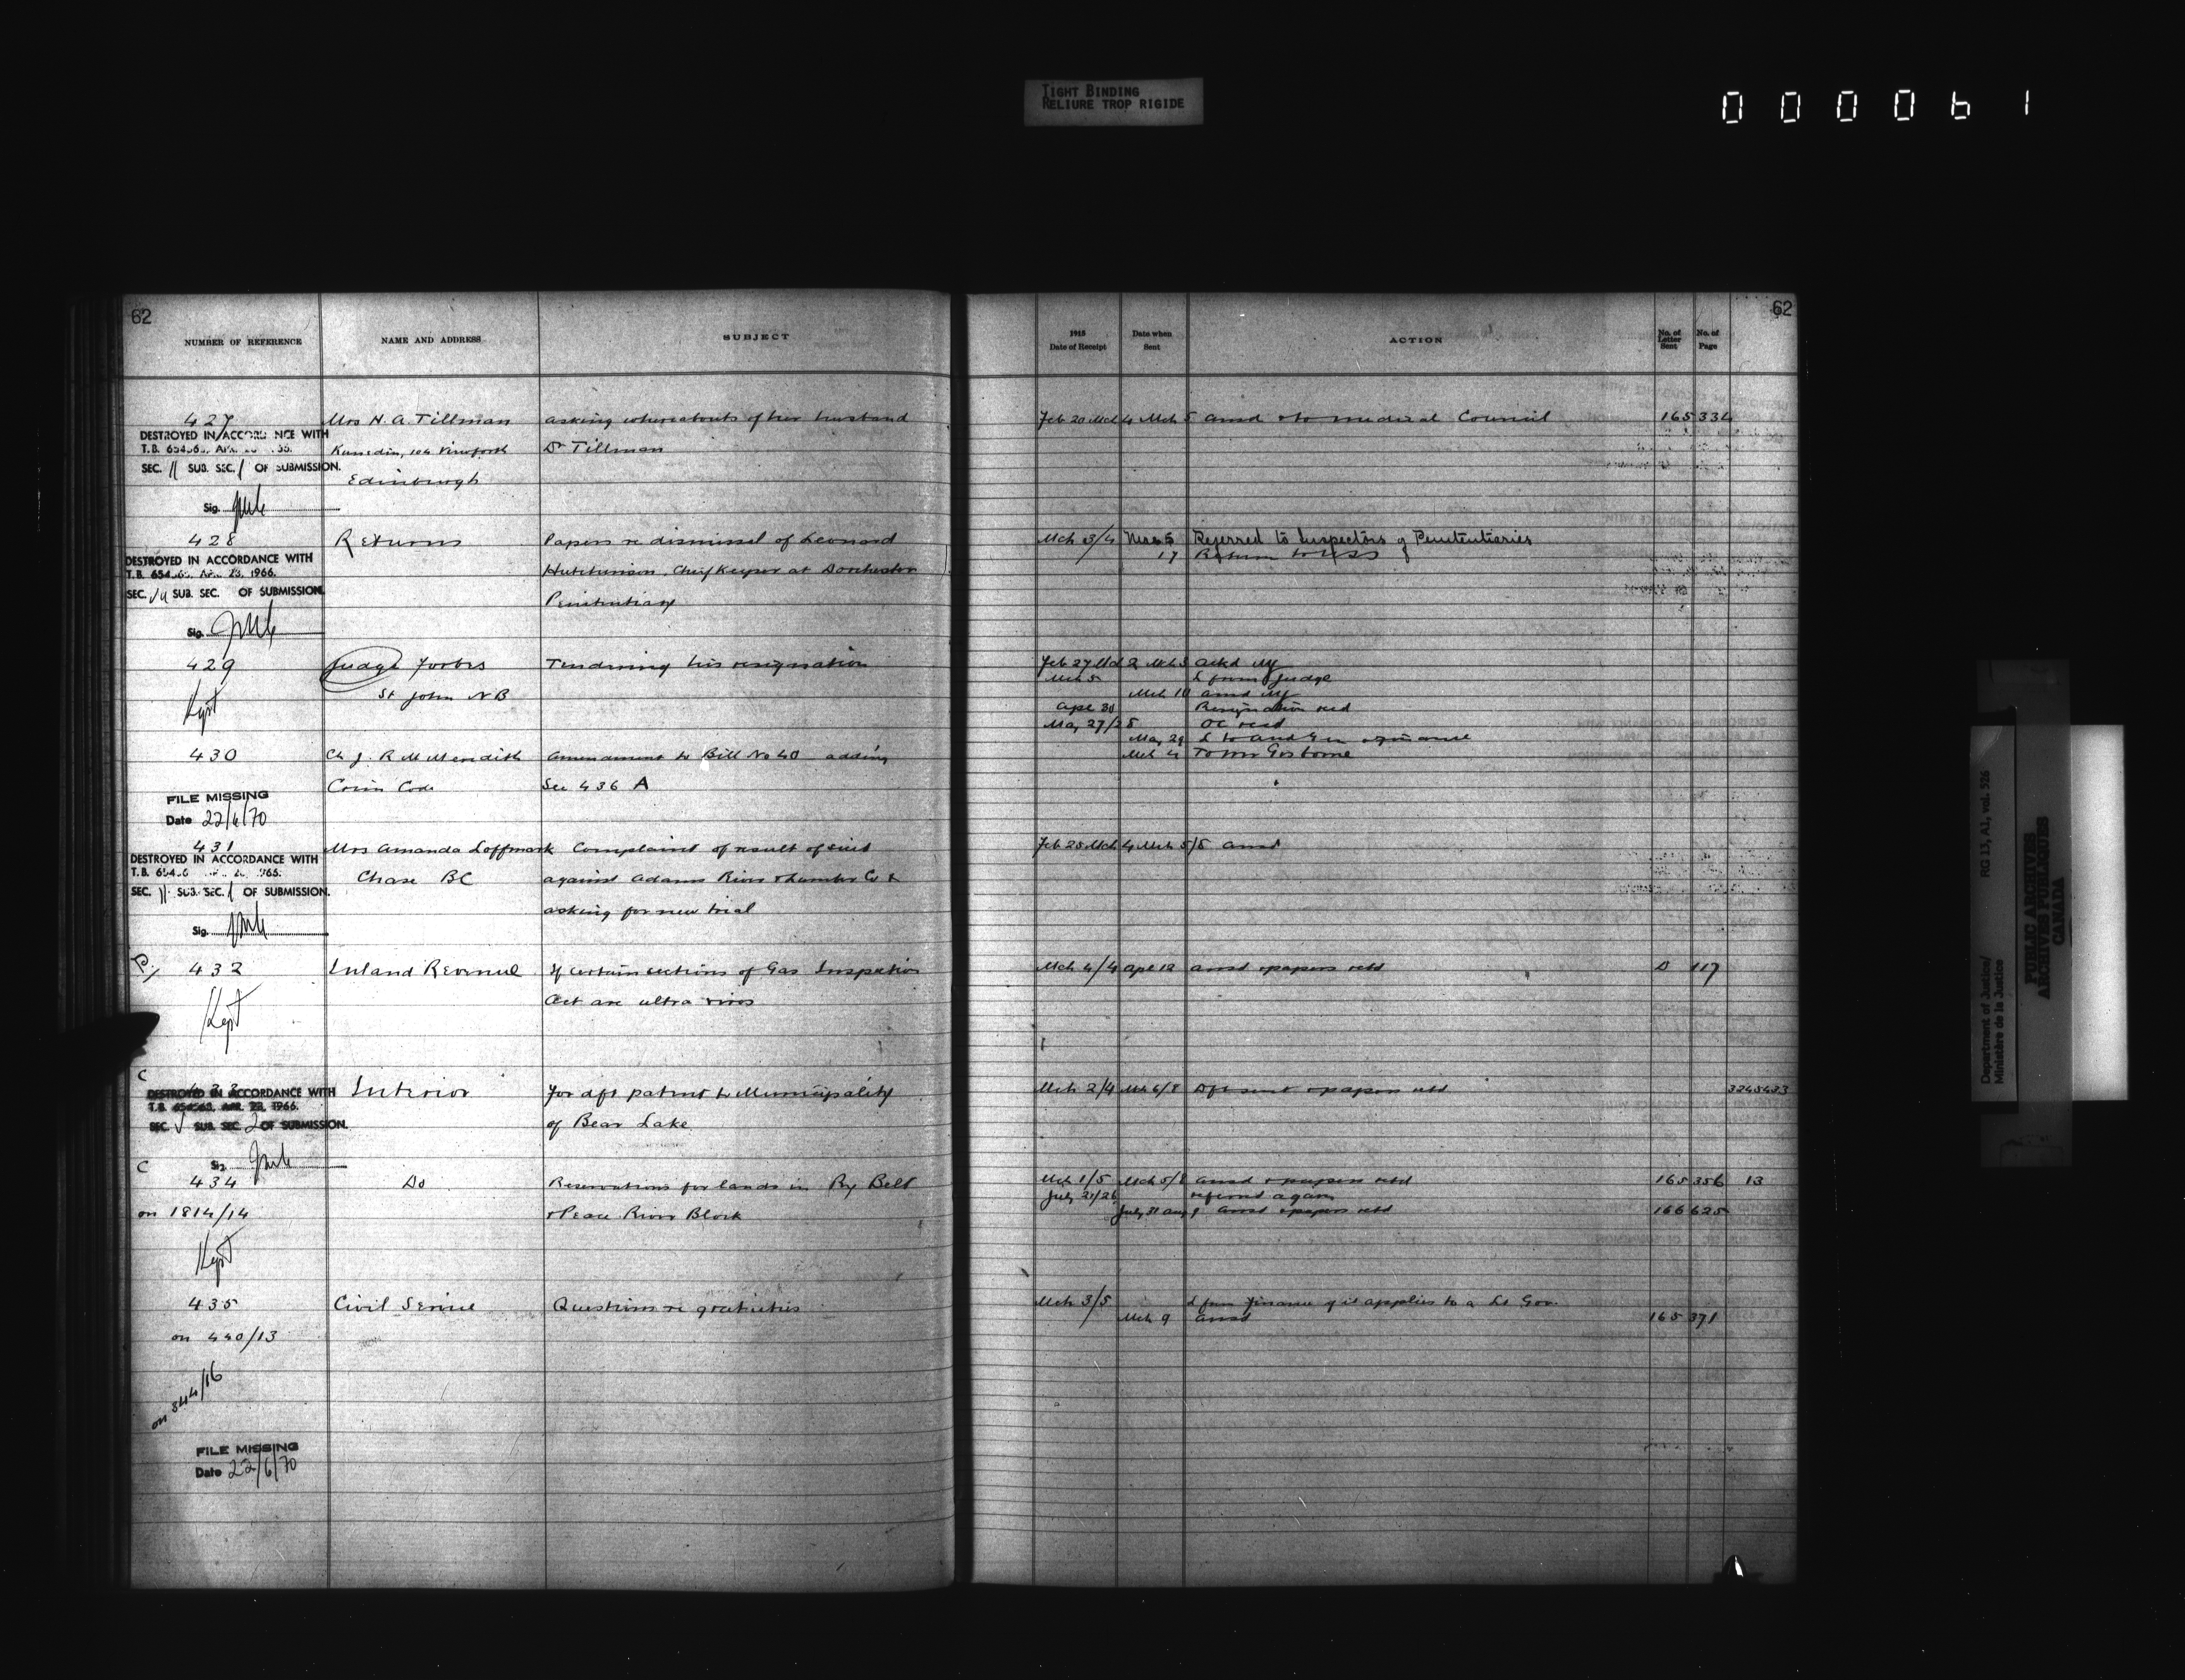 TIGHT BINDING
RELIURE TROP RIGIDE
000061
62
NUMBER OF REFERENCE NAME AND ADDRESS SUBJECT
427 Mrs H. A. Tillman asking whereabouts of her husband
DESTROYED IN ACCORDANCE WITH
T.B. 65456
104 Dr Tillman
SEC. 11 SUB. SEC. 1 OF SUBMISSION.
Edinburgh
Sig.
428 Returns Papers re dismissal of Leonard
DESTROYED IN ACCORDANCE WITH
T.B. 654 23, 1966. Hutchinson, Chief Keeper at Dorchester
SEC. SUB. SEC. OF SUBMISSION. Penitentiary
Sig.
429 Judge Forbes Tendering his resignation
Kept St John NB
430 Ch J. R M Meredith Amendment to Bill No 40 adding
Crim Code Sec 436 A
FILE MISSING
Date 22/6/70
431 Mrs Amanda Loffmark Complaint of result of suit
DESTROYED IN ACCORDANCE WITH
Chase BC against Adams River Lumber Co &
SEC. 11 SUB. SEC. 1 OF SUBMISSION.
asking for new trial
Sig.
432 Inland Revenue If certain sections of Gas Inspection
Kept Act are ultra vires
C
433 Interior For dft patent to Municipality
DESTROYED IN ACCORDANCE WITH
T.B. 654563, APR. 23, 1966.
SEC. V SUB. SEC. 2 OF SUBMISSION. of Bear Lake
Sig.
C
434 Do Reservations for lands in Ry Belt
on 1814/14 & Peace River Block
Kept
435 Civil Service Questions re gratuities
on 440/13
on 344/16
FILE MISSING
Date 22/6/70
62
1915 Date of Receipt Date when Sent ACTION No. of Letter Sent No. of Page
Feb 20 Mch 4 Mch 5 ansd & to medical Council 165 334
Mch 3/4 Referred to Inspectors of Penitentiaries
17 Return to
Feb 27 Mch 2 Mch 3 ackd
Mch 5 L from Judge
Mch 10 ansd
Apr 30 Resignation recd
May 27/28 OC recd
May 29 L to Aud Gen & finance
Mch 4 To Mr Gisborne
Feb 25 Mch 4 Mch 5/5 ansd
Mch 4/4 Apr 12 ansd & papers retd D 117
Mch 2/4 Mch 6/8 Dft sent & papers retd 3245433
Mch 1/5 Mch 5/8 ansd & papers retd 165 356 13
July 21/26 referred again
July 31 Aug ansd & papers retd 166 625
Mch 3/5 L from Finance if it applies to a Lt Gov.
Mch 9 ansd 165 371
Department of Justice/
Ministère de la Justice
RG 13, A1, vol. 526
PUBLIC ARCHIVES
ARCHIVES PUBLIQUES
CANADA